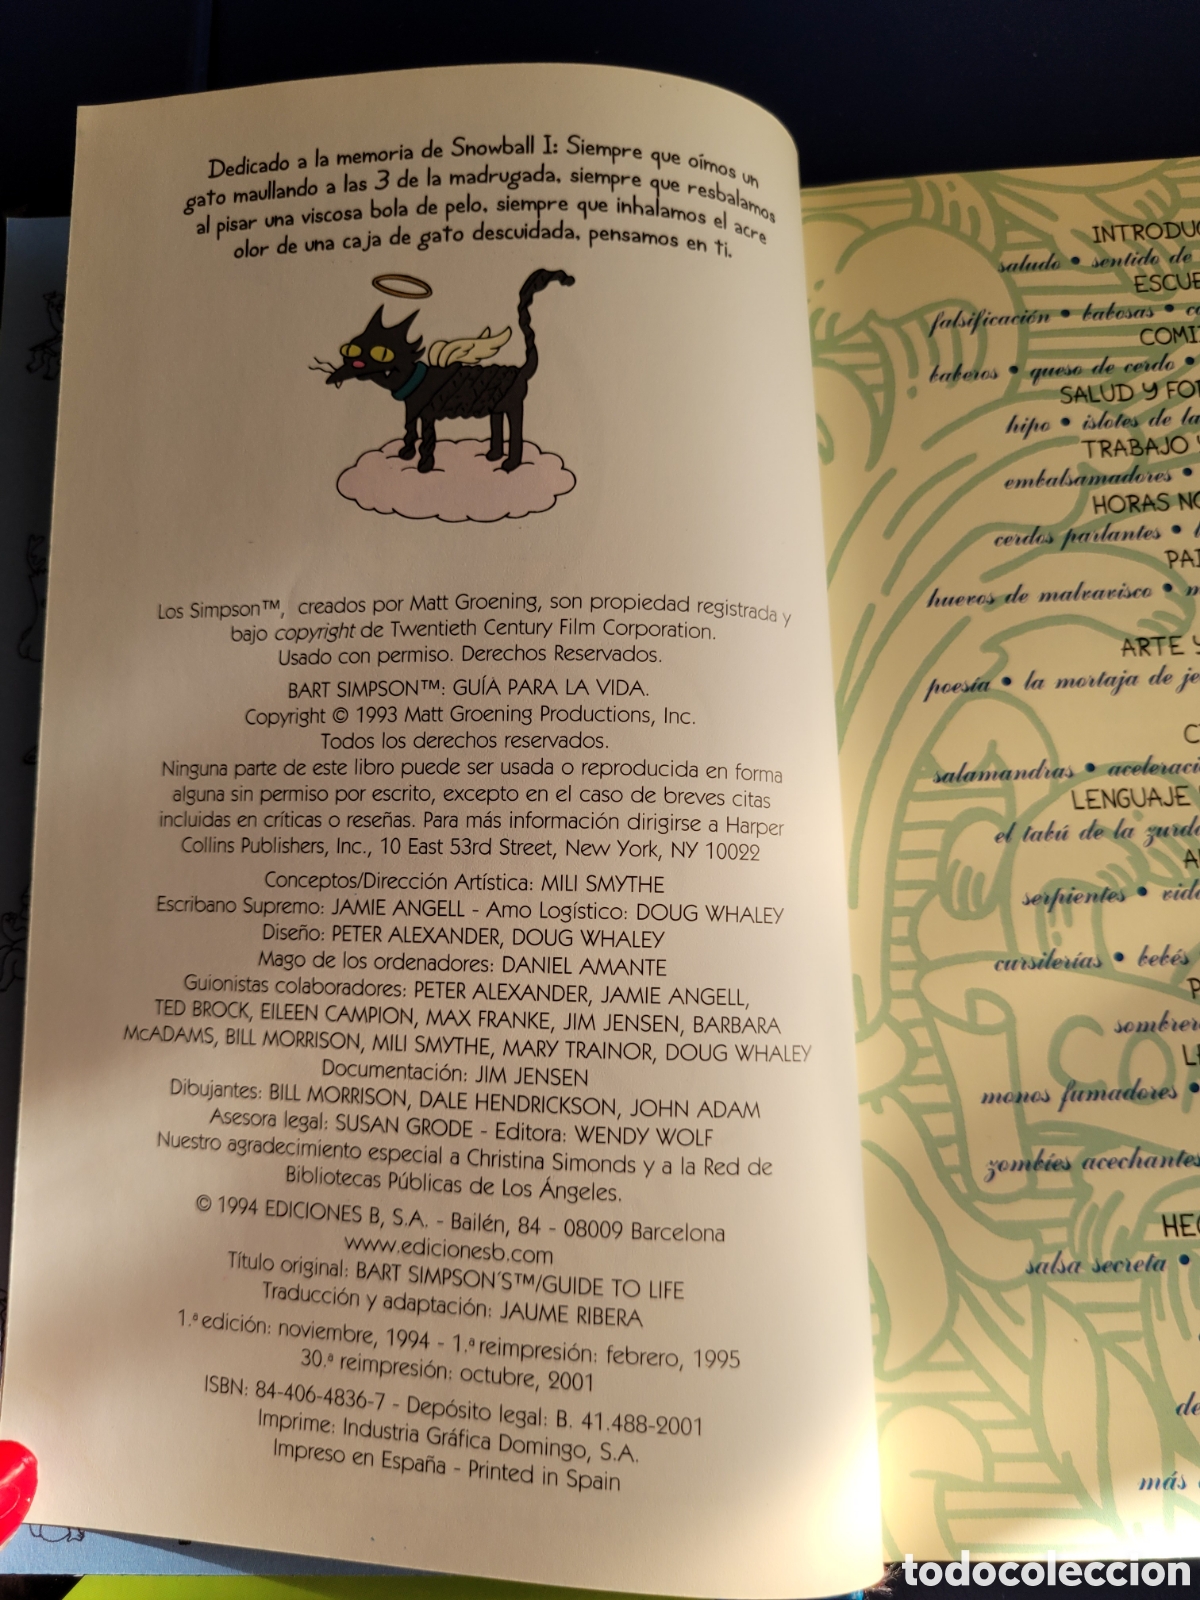 Dedicado a la memoria de Snowball I: Siempre que oímos un
gato maullando a las 3 de la madrugada, siempre que resbalamos
al pisar una viscosa bola de pelo, siempre que inhalamos el acre
olor de una caja de gato descuidada, pensamos en ti.
Los Simpson™, creados por Matt Groening, son propiedad registrada y
bajo copyright de Twentieth Century Film Corporation.
Usado con permiso. Derechos Reservados.
BART SIMPSON™: GUÍA PARA LA VIDA.
Copyright © 1993 Matt Groening Productions, Inc.
Todos los derechos reservados.
Ninguna parte de este libro puede ser usada o reproducida en forma
alguna sin permiso por escrito, excepto en el caso de breves citas
incluidas en críticas o reseñas. Para más información dirigirse a Harper
Collins Publishers, Inc., 10 East 53rd Street, New York, NY 10022
Conceptos/Dirección Artística: MILI SMYTHE
Escribano Supremo: JAMIE ANGELL - Amo Logístico: DOUG WHALEY
Diseño: PETER ALEXANDER, DOUG WHALEY
Mago de los ordenadores: DANIEL AMANTE
Guionistas colaboradores: PETER ALEXANDER, JAMIE ANGELL,
TED BROCK, EILEEN CAMPION, MAX FRANKE, JIM JENSEN, BARBARA
McADAMS, BILL MORRISON, MILI SMYTHE, MARY TRAINOR, DOUG WHALEY
Documentación: JIM JENSEN
Dibujantes: BILL MORRISON, DALE HENDRICKSON, JOHN ADAM
Asesora legal: SUSAN GRODE - Editora: WENDY WOLF
Nuestro agradecimiento especial a Christina Simonds y a la Red de
Bibliotecas Públicas de Los Ángeles.
© 1994 EDICIONES B, S.A. - Bailén, 84 - 08009 Barcelona
www.edicionesb.com
Título original: BART SIMPSON'S™/GUIDE TO LIFE
Traducción y adaptación: JAUME RIBERA
1.ª edición: noviembre, 1994 - 1.ª reimpresión: febrero, 1995
30.ª reimpresión: octubre, 2001
ISBN: 84-406-4836-7 - Depósito legal: B. 41.488-2001
Imprime: Industria Gráfica Domingo, S.A.
Impreso en España - Printed in Spain
INTRODUC
saludo • sentido de
ESCUE
falsificación • babosas • c
COMI
baberos • queso de cerdo •
SALUD Y FO
hipo • islotes de la
TRABAJO Y
embalsamadores •
HORAS NO
cerdos parlantes •
PA
huevos de malvavisco •
ARTE Y
poesía • la mortaja de je
C
salamandras • aceleraci
LENGUAJE
el tabú de la zurd
A
serpientes • vida
cursilerías • bebés
P
sombrer
L
monos fumadores •
zombíes acechantes
HE
salsa secreta •
de
más
CO
todocoleccion